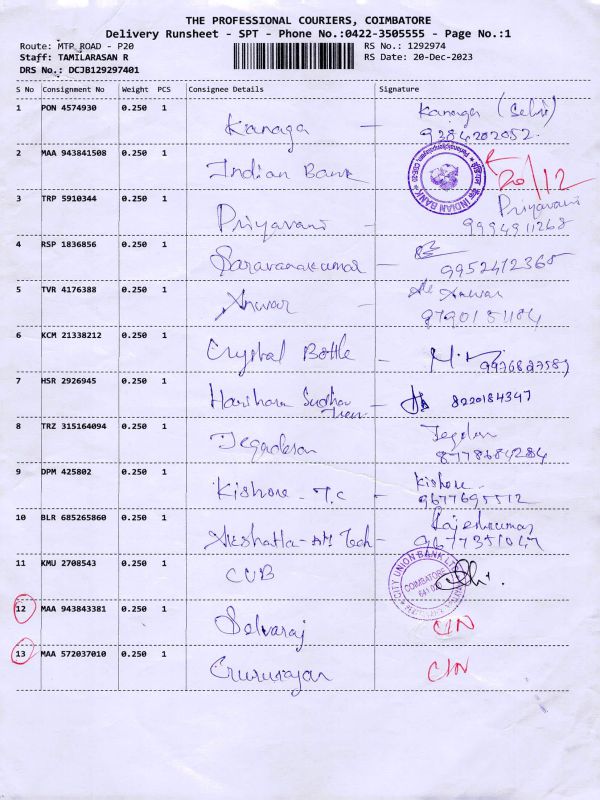 THE PROFESSIONAL COURIERS, COIMBATORE
Delivery Runsheet - SPT - Phone No.:0422-3505555 - Page No.:1
Route: MTP ROAD - P20 RS No.: 1292974
Staff: TAMILARASAN R RS Date: 20-Dec-2023
DRS No.: DCJB129297401
S No Consignment No Weight PCS Consignee Details Signature
1 PON 4574930 0.250 1 Kanaga - Kanaga (Selvi)
9284202052.
2 MAA 943841508 0.250 1 Indian Bank INDIAN BANK 20/12
3 TRP 5910344 0.250 1 Priyavani - Priyavani
9994911268
4 RSP 1836856 0.250 1 Saravanakumar - 9952412368
5 TVR 4176388 0.250 1 Anwar - Anwar
8790151184
6 KCM 21338212 0.250 1 Crystal Bottle -
7 HSR 2926945 0.250 1 Harihara Sudhan - 8220184347
8 TRZ 315164094 0.250 1 Jegadesan Jegdan
8778684284
9 DPM 425802 0.250 1 Kishore - T.C - Kishore
9677695512
10 BLR 685265860 0.250 1 Akshatha - AM Tech - Rajeshkumar
9677351047
11 KMU 2708543 0.250 1 CUB CITY UNION BANK COIMBATORE
12 MAA 943843381 0.250 1 Selvaraj C/N
13 MAA 572037010 0.250 1 Gururajan C/N